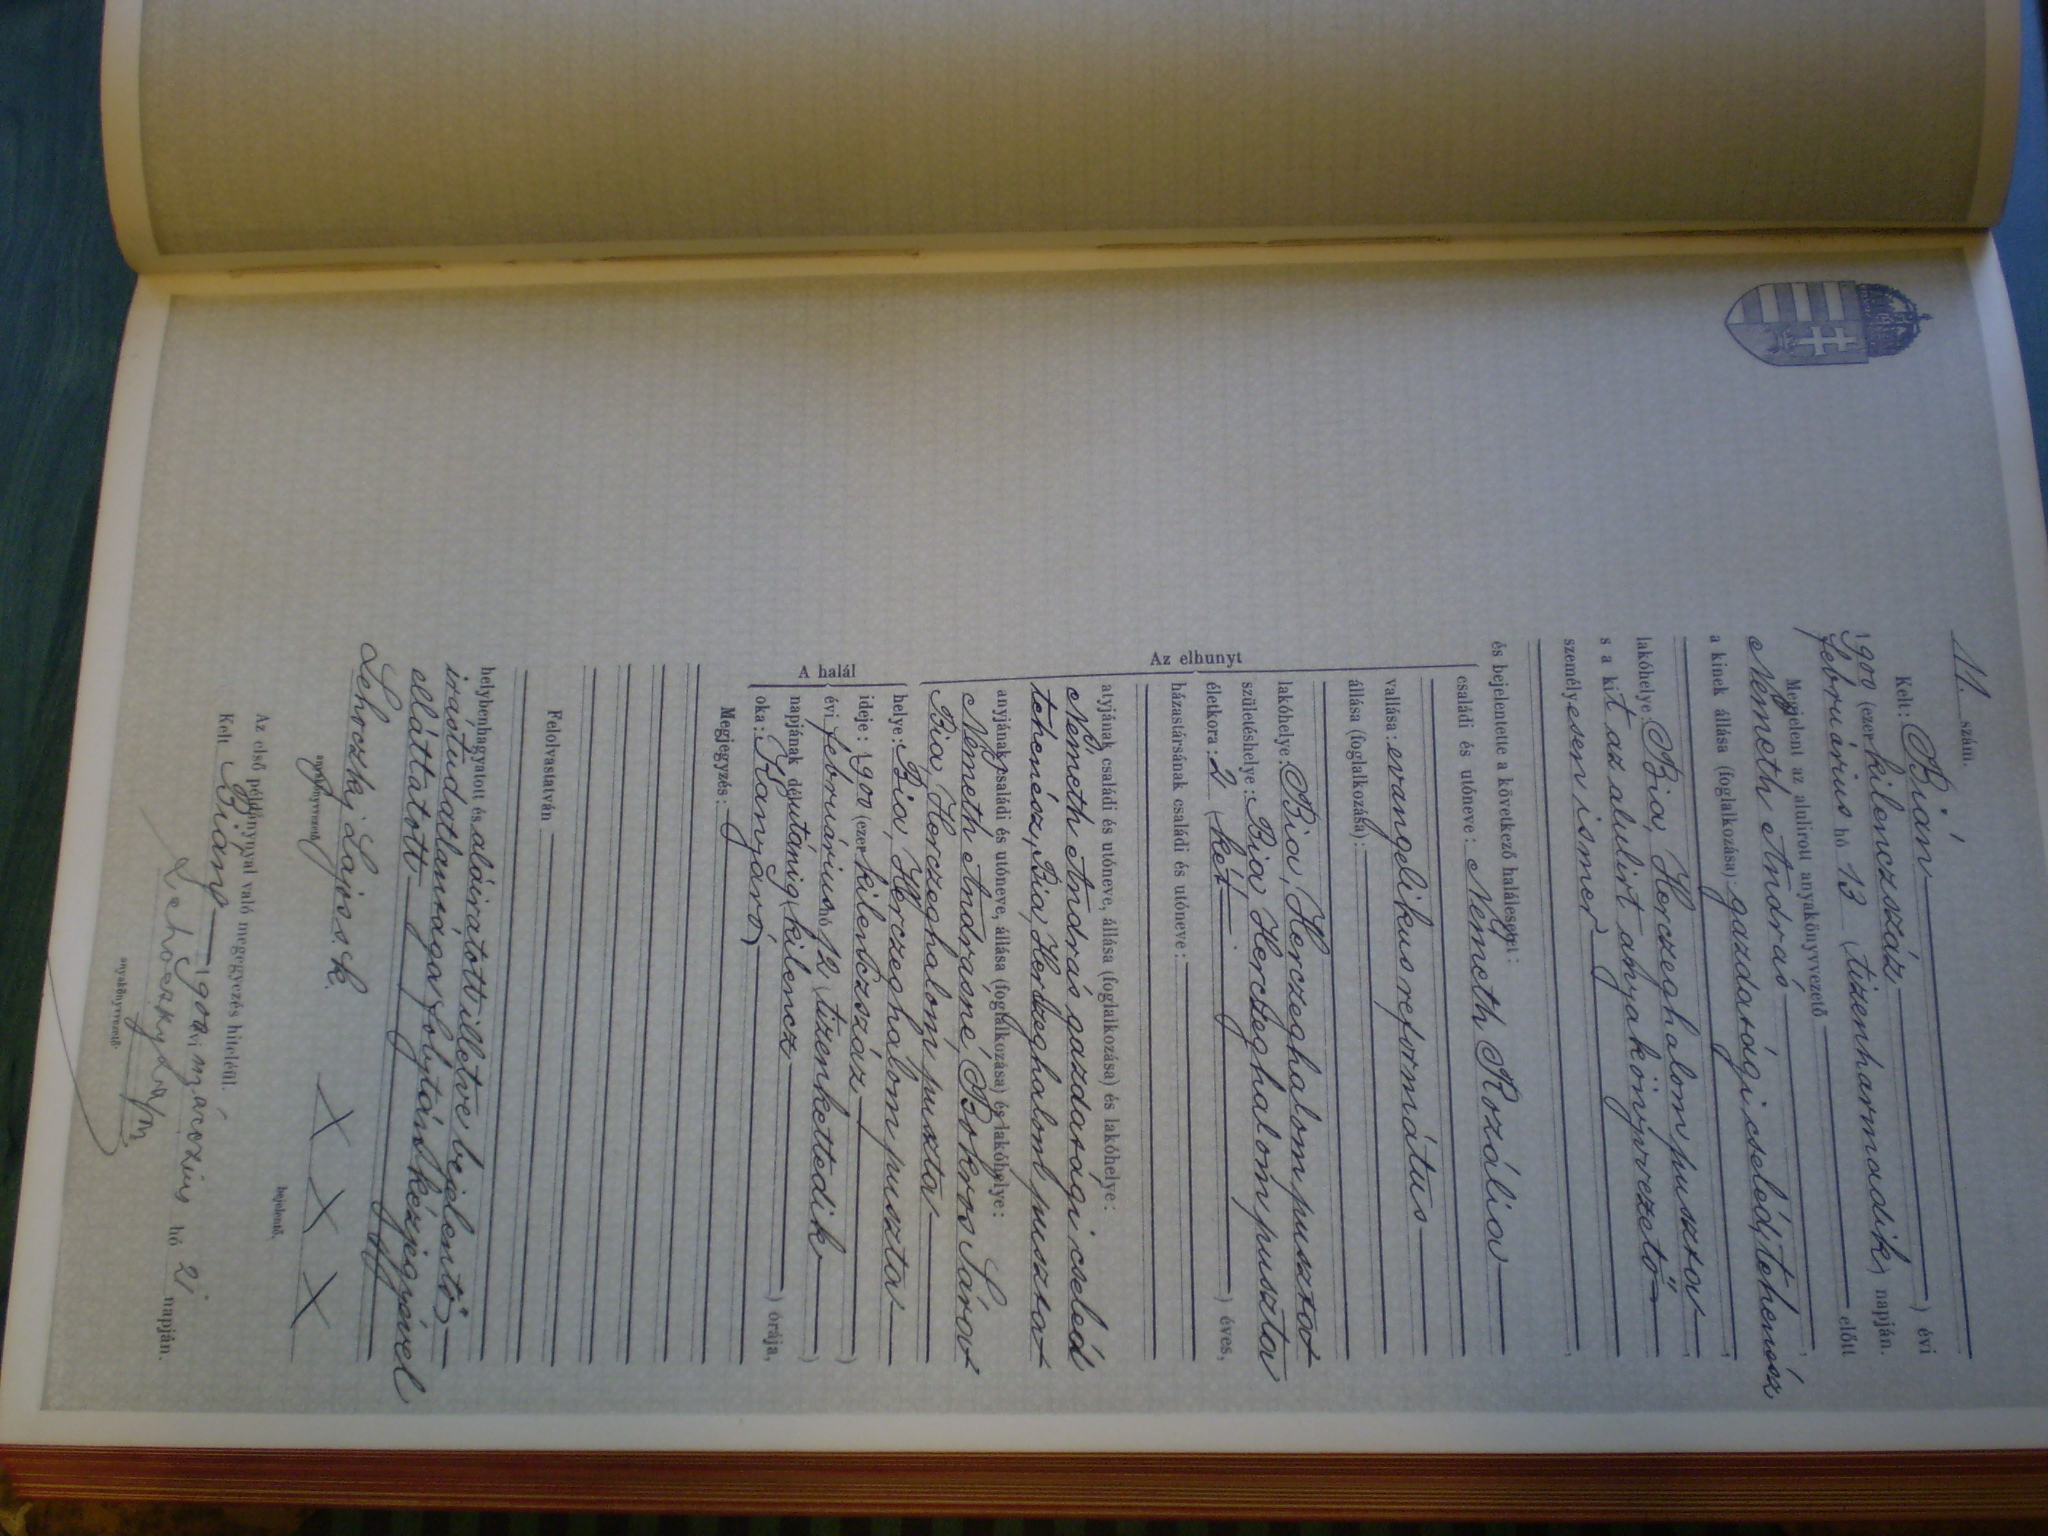 11. szám.
Kelt: Bián ) évi
1900 (ezer kilenczszáz
februárius hó 13 (tizenharmadik) napján.
Megjelent az alulirott anyakönyvvezető előtt
Németh András
a kinek állása (foglalkozása) gazdasági cseléd, tehenész,
lakóhelye: Bia, Herczeghalom puszta,
s a kit az alulirt anyakönyvvezető
személyesen ismer,
és bejelentette a következő halálesetet:
Az elhunyt
családi és utóneve: Németh Rozália
vallása: evangelikus református
állása (foglalkozása):
lakóhelye: Bia, Herczeghalom puszta
születéshelye: Bia, Herczeghalom puszta
életkora: 2 (két ) éves,
házastársának családi és utóneve:
atyjának családi és utóneve, állása (foglalkozása) és lakóhelye:
Németh András gazdasági cseléd
tehenész, Bia, Herczeghalom puszta
anyjának családi és utóneve, állása (foglalkozása) és lakóhelye:
Németh Andrásné, Bokros Sára
Bia, Herczeghalom puszta
A halál
helye: Bia, Herczeghalom puszta
ideje: 1900 (ezer kilenczszáz )
évi februárius hó 12 (tizenkettedik )
napjának délutánig (kilencz ) órája,
oka: Kanyaró
Megjegyzés:
Felolvastatván
helybenhagyatott és aláiratott illetve bejelentő
irástudatlansága folytán kézjegyével
elláttatott
Lehoczky Lajos s. k. X X X
anyakönyvvezető. bejelentő.
Az első példánynyal való megegyezés hiteléül.
Kelt Bián 1900 évi márczius hó 21 napján.
Lehoczky
anyakönyvvezető.